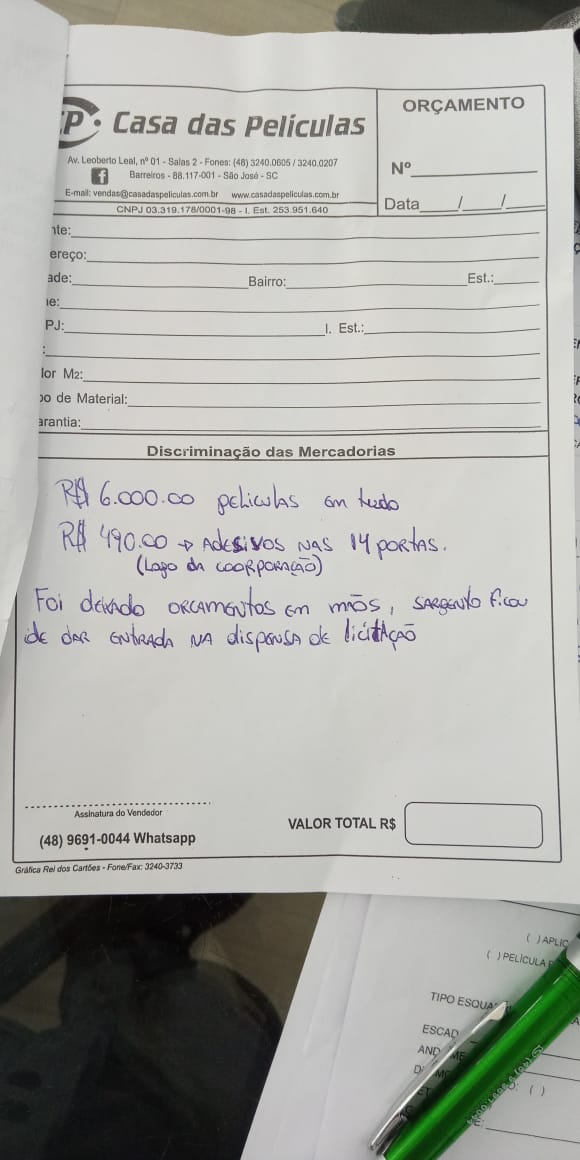 CP Casa das Películas
ORÇAMENTO
Av. Leoberto Leal, nº 01 - Salas 2 - Fones: (48) 3240.0605 / 3240.0207
Barreiros - 88.117-001 - São José - SC
E-mail: vendas@casadaspeliculas.com.br www.casadaspeliculas.com.br
CNPJ 03.319.178/0001-98 - I. Est. 253.951.640
Nº
Data / /
nte:
ereço:
ade: Bairro: Est.:
ne:
PJ: I. Est.:
:
lor M2:
po de Material:
arantia:
Discriminação das Mercadorias
R$ 6.000.00 peliculas em tudo
R$ 490.00 → ADESIVOS NAS 14 PORTAS.
(Logo da COORPORAÇÃO)
Foi deixado ORCAMENTOS em mãos, SARGENTO ficou
de DAR ENTRADA NA dispensa de licitAção
Assinatura do Vendedor
(48) 9691-0044 Whatsapp
VALOR TOTAL R$
Gráfica Rei dos Cartões - Fone/Fax: 3240-3733
( ) APLIC
( ) PELÍCULA
TIPO ESQUA
ESCAD
AND
( )